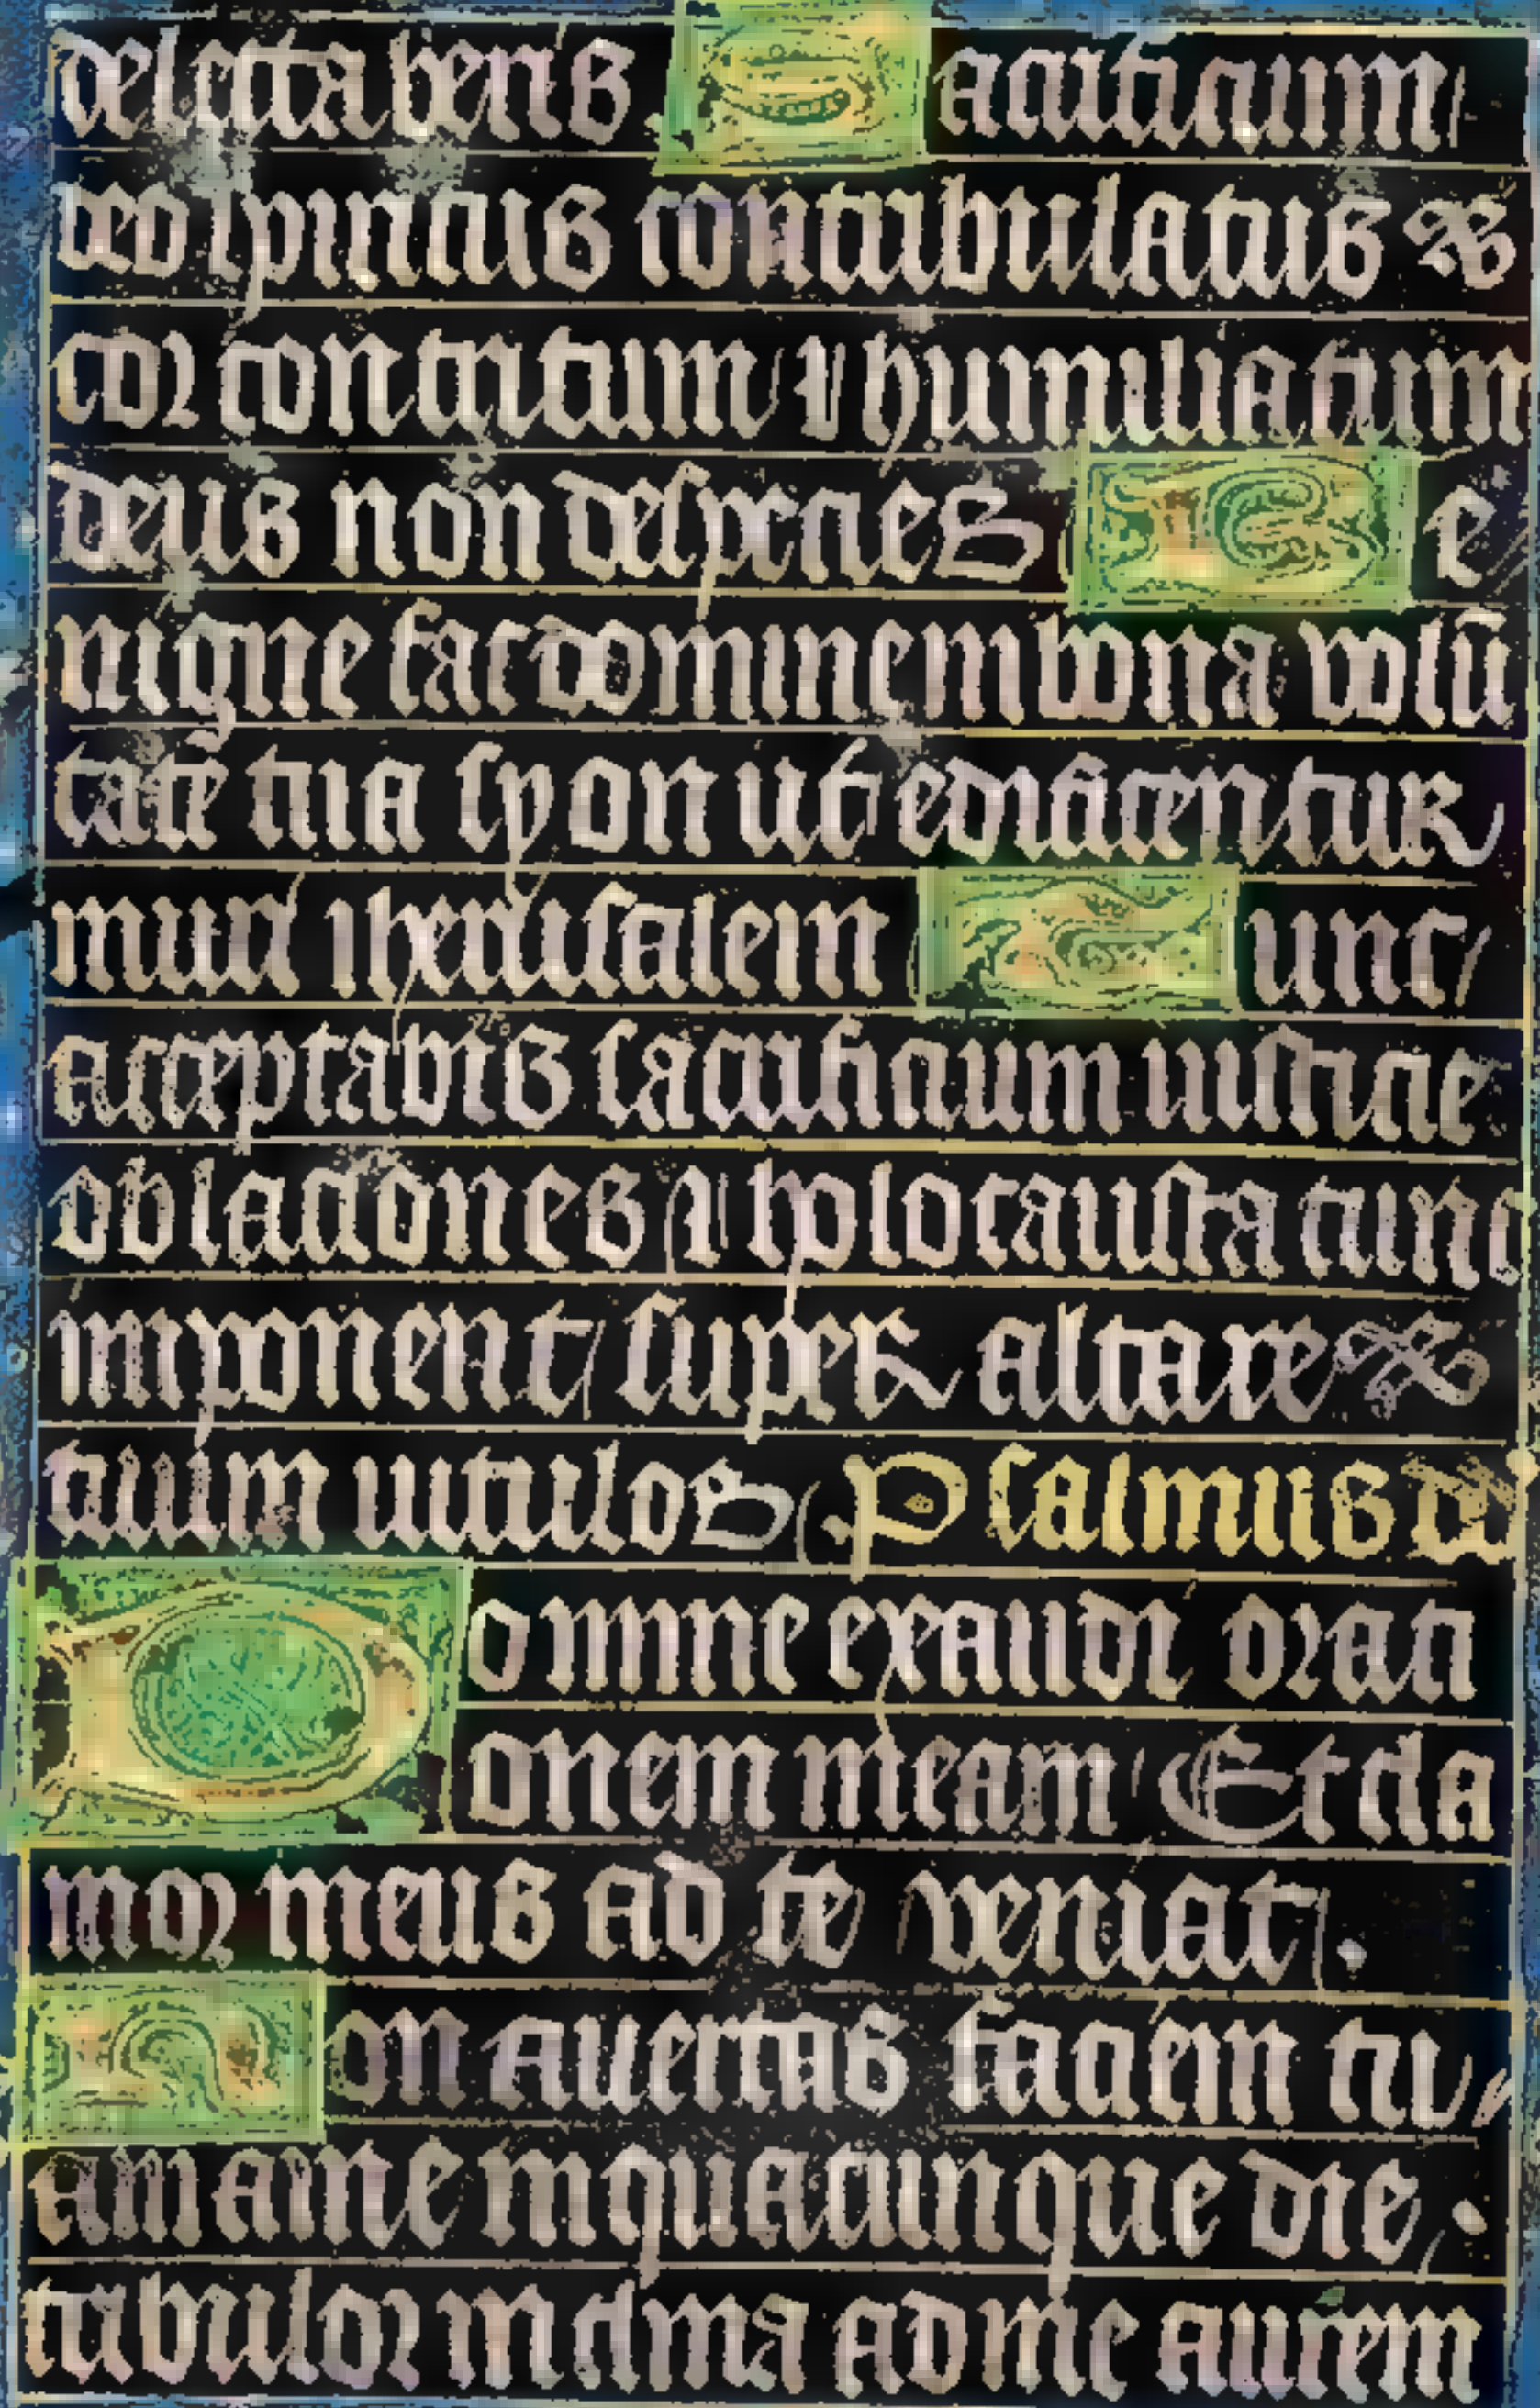 delectaberis Sacrificium
deo spiritus contribulatus
cor contritum ⁊ humiliatum
deus non despicies Be
nigne fac domine in bona volū
tate tua syon ut edificentur
muri iherusalem Tunc
acceptabis sacrificium iusticie
oblaciones ⁊ holocausta tunc
imponent super altare
tuum vitulos Psalmus dd
Domine exaudi orati
onem meam Et cla
mor meus ad te veniat .
Non avertas faciem tu
am a me in quacunque die .
tribulor inclina ad me aurem